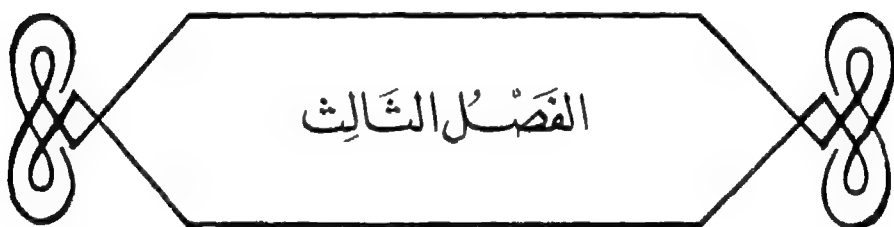 الفَصْلُ الثَّالِث